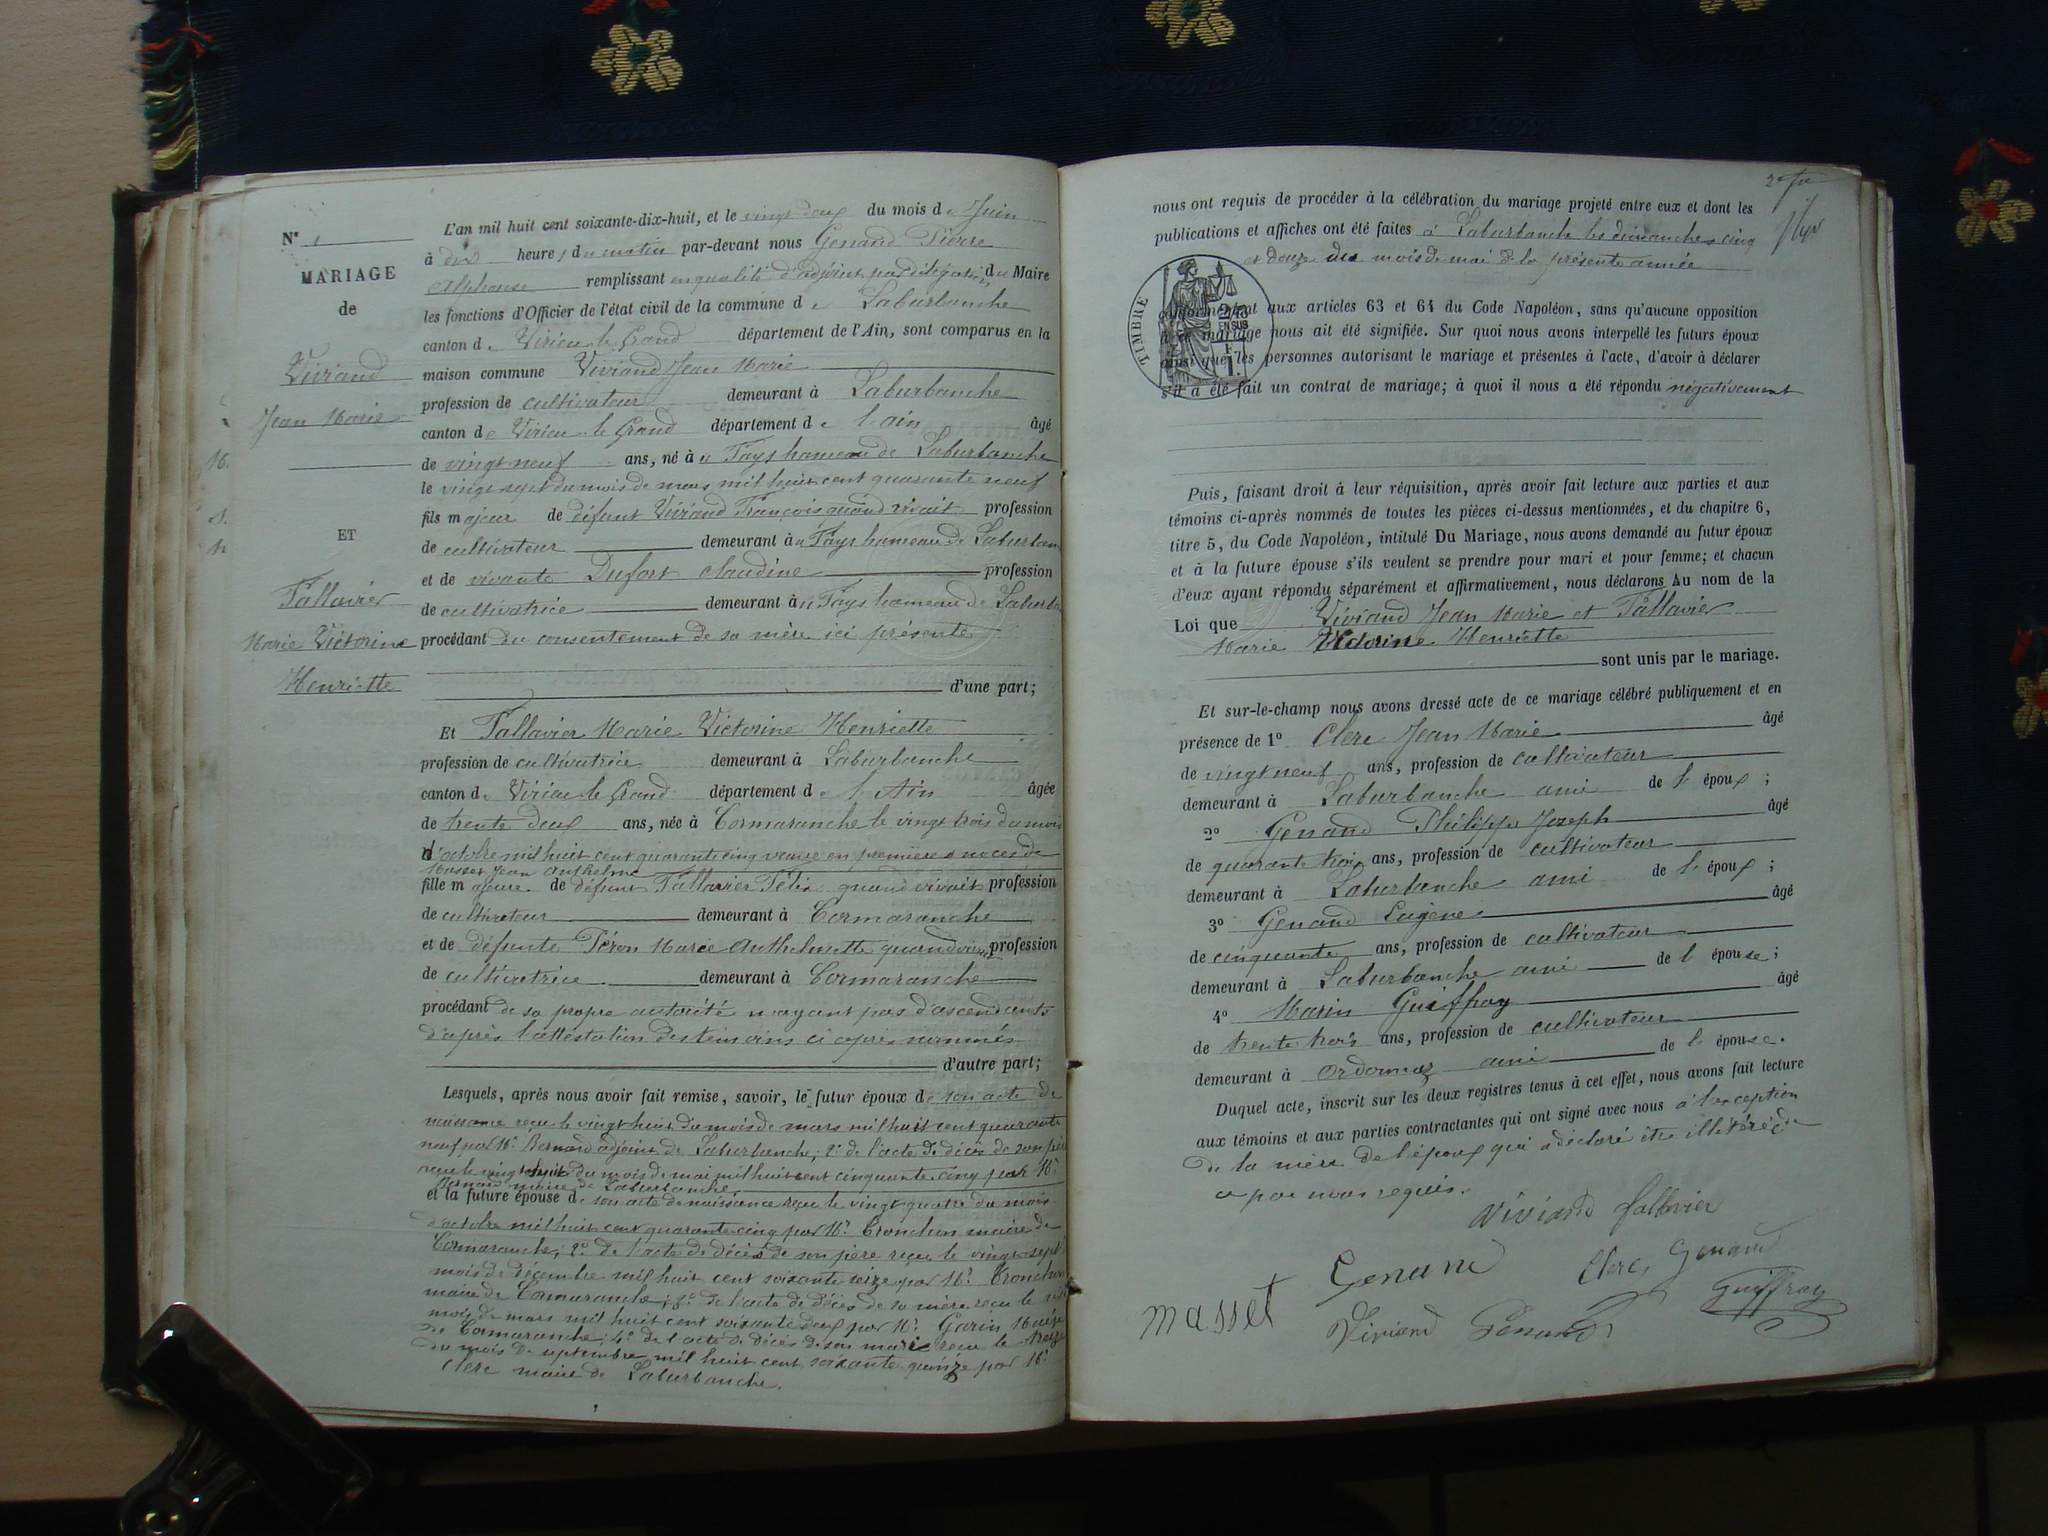 N° 1
MARIAGE
de
Viviand
Jean Marie
ET
Tallavier
Marie Victorine
Henriette
L'an mil huit cent soixante-dix-huit, et le vingt deux du mois de Juin
à dix heures du matin par-devant nous Genand Pierre
Alphonse remplissant en qualité d'adjoint par délégation du Maire
les fonctions d'Officier de l'état civil de la commune de Laburbanche
canton de Virieu le Grand département de l'Ain, sont comparus en la
maison commune Viviand Jean Marie
profession de cultivateur demeurant à Laburbanche
canton de Virieu le Grand département de l'ain âgé
de vingt neuf ans, né à a Fays hameau de Laburbanche
le vingt sept du mois de mars mil huit cent quarante neuf
fils majeur de défunt Viviand François quand vivait profession
de cultivateur demeurant à a Fays hameau de Laburban
et de vivante Dufort Claudine profession
de cultivatrice demeurant à a Fays hameau de Laburba
procédant du consentement de sa mère ici présente
d'une part;
Et Tallavier Marie Victorine Henriette
profession de cultivatrice demeurant à Laburbanche
canton de Virieu le Grand département de l'Ain âgée
de trente deux ans, née à Cormaranche le vingt trois du mois
d'octobre mil huit cent quarante cinq veuve en premières noces de
Masset Jean Anthelme
fille majeure de défunt Tallavier Félix quand vivait profession
de cultivateur demeurant à Cormaranche
et de défunte Péron Marie Anthelmette quand vivait profession
de cultivatrice demeurant à Cormaranche
procédant de sa propre autorité n'ayant pas d'ascendants
d'après l'attestation des témoins ci après nommés
d'autre part;
Lesquels, après nous avoir fait remise, savoir, le futur époux de son acte de
naissance reçu le vingt huit du mois de mars mil huit cent quarante
neuf par Mr Bernard adjoint de Laburbanche; 2° de l'acte de décès de son père
reçu le vingt huit du mois de mai mil huit cent cinquante cinq par Mr
Bernard maire de Laburbanche
et la future épouse de son acte de naissance reçu le vingt quatre du mois
d'octobre mil huit cent quarante cinq par Mr Tronchon maire de
Cormaranche; 2° de l'acte de décès de son père reçu le vingt sept
mois de décembre mil huit cent soixante seize par Mr Tronchon
maire de Cormaranche; 3° de l'acte de décès de sa mère reçu le
mois de mars mil huit cent soixante deux par Mr Garin Maire
de Cormaranche; 4° de l'acte de décès de son mari reçu le treize
du mois de septembre mil huit cent soixante quinze par Mr
Clerc maire de Laburbanche.
nous ont requis de procéder à la célébration du mariage projeté entre eux et dont les
publications et affiches ont été faites à Laburbanche les dimanches cinq
et douze du mois de mai de la présente année
TIMBRE
2/10
EN SUS
conformément aux articles 63 et 64 du Code Napoléon, sans qu'aucune opposition
à ce mariage nous ait été signifiée. Sur quoi nous avons interpellé les futurs époux
ainsi que les personnes autorisant le mariage et présentes à l'acte, d'avoir à déclarer
s'il a été fait un contrat de mariage; à quoi il nous a été répondu négativement
Puis, faisant droit à leur réquisition, après avoir fait lecture aux parties et aux
témoins ci-après nommés de toutes les pièces ci-dessus mentionnées, et du chapitre 6,
titre 5, du Code Napoléon, intitulé Du Mariage, nous avons demandé au futur époux
et à la future épouse s'ils veulent se prendre pour mari et pour femme; et chacun
d'eux ayant répondu séparément et affirmativement, nous déclarons Au nom de la
Loi que Viviand Jean Marie et Tallavier
Marie Victorine Henriette
sont unis par le mariage.
Et sur-le-champ nous avons dressé acte de ce mariage célébré publiquement et en
présence de 1° Clerc Jean Marie âgé
de vingt neuf ans, profession de cultivateur
demeurant à Laburbanche ami de l'époux ;
2° Genand Philippe Joseph âgé
de quarante trois ans, profession de cultivateur
demeurant à Laburbanche ami de l'époux ;
3° Genand Eugène âgé
de cinquante ans, profession de cultivateur
demeurant à Laburbanche ami de l'épouse ;
4° Marin Guiffray âgé
de trente trois ans, profession de cultivateur
demeurant à Ordonnaz ami de l'épouse.
Duquel acte, inscrit sur les deux registres tenus à cet effet, nous avons fait lecture
aux témoins et aux parties contractantes qui ont signé avec nous à l'exception
de la mère de l'époux qui a déclaré être illitérée de
ce par nous requis.
Viviand Tallavier
Genand Clerc Genand
Masset Viviand Genand Guiffray